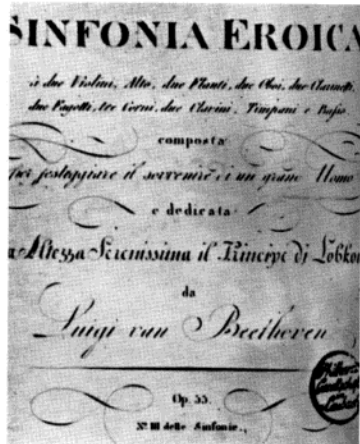 SINFONIA EROICA
à due Violini, Alto, due Flauti, due Oboi, due Clarinetti,
due Fagotti, tre Corni, due Clarini, Timpani e Basso
composta
per festeggiare il sovvenire di un grand Uomo
e dedicata
a Altezza Serenissima il Principe di Lobkow
da
Luigi van Beethoven,
Op. 55.
No. III delle Sinfonie.,